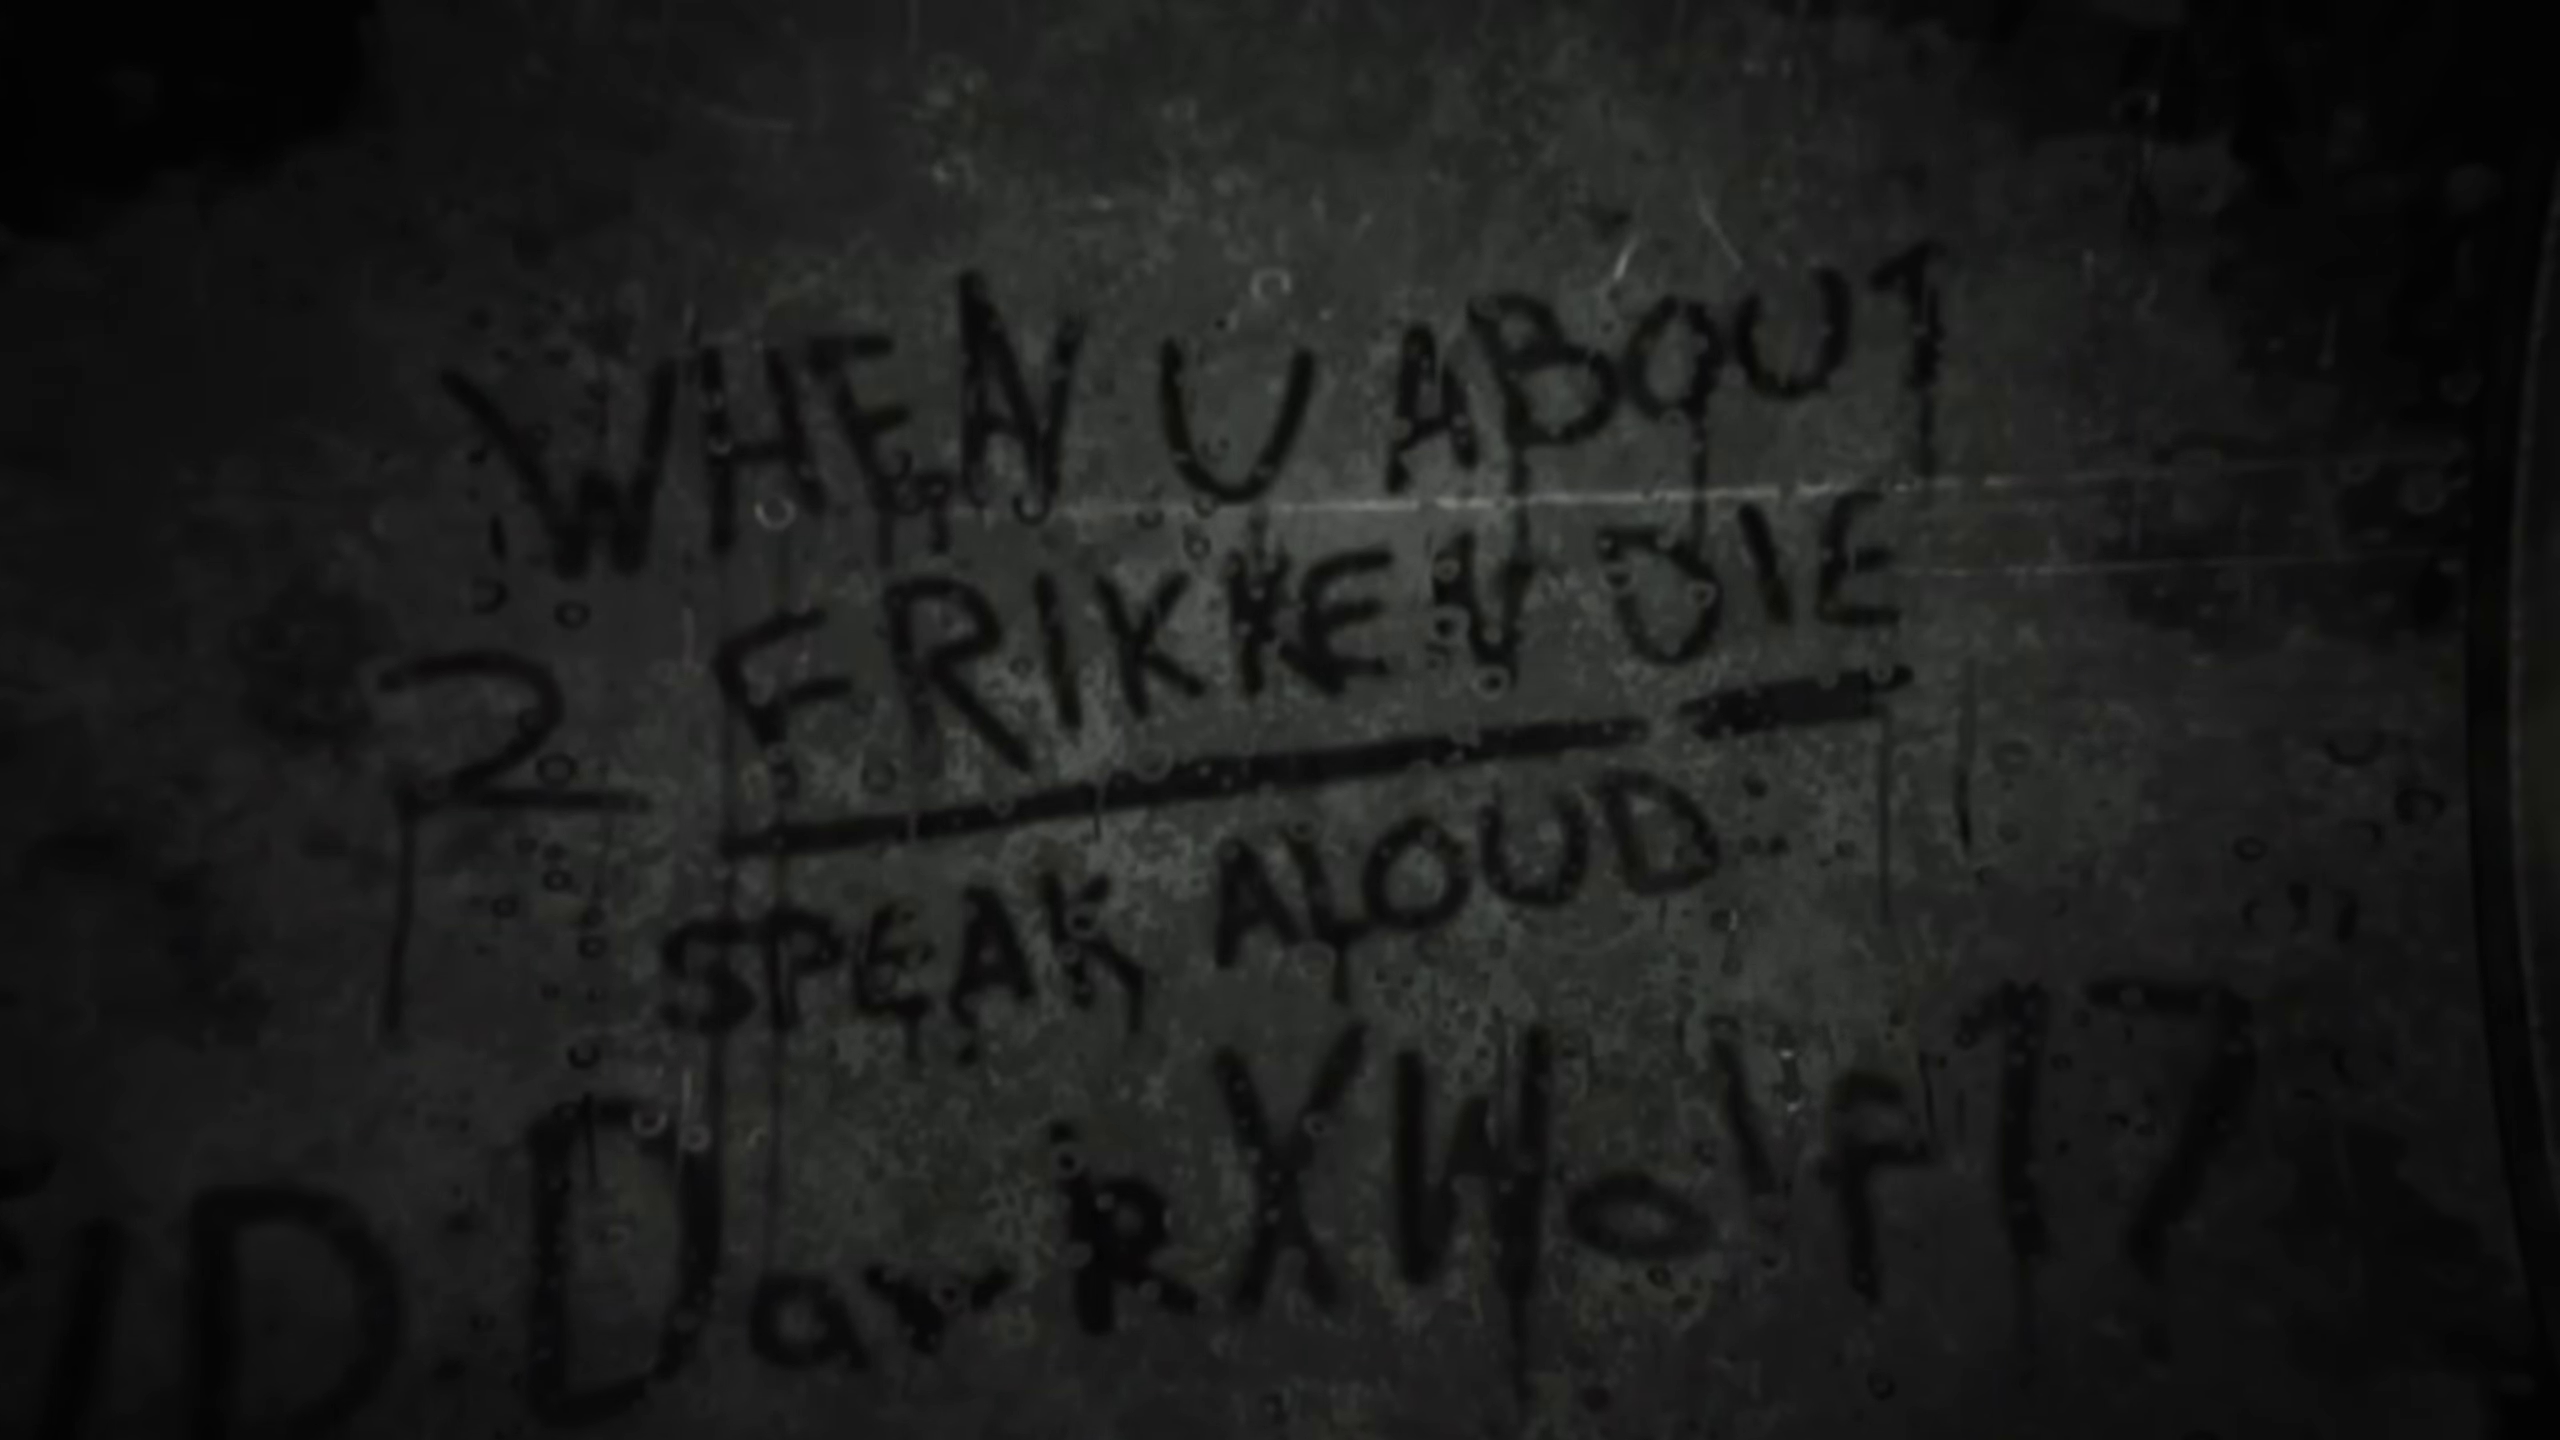 WHEN U ABOUT
2 FRIKKEN DIE
SPEAK ALOUD
ID: DarkXWolf17